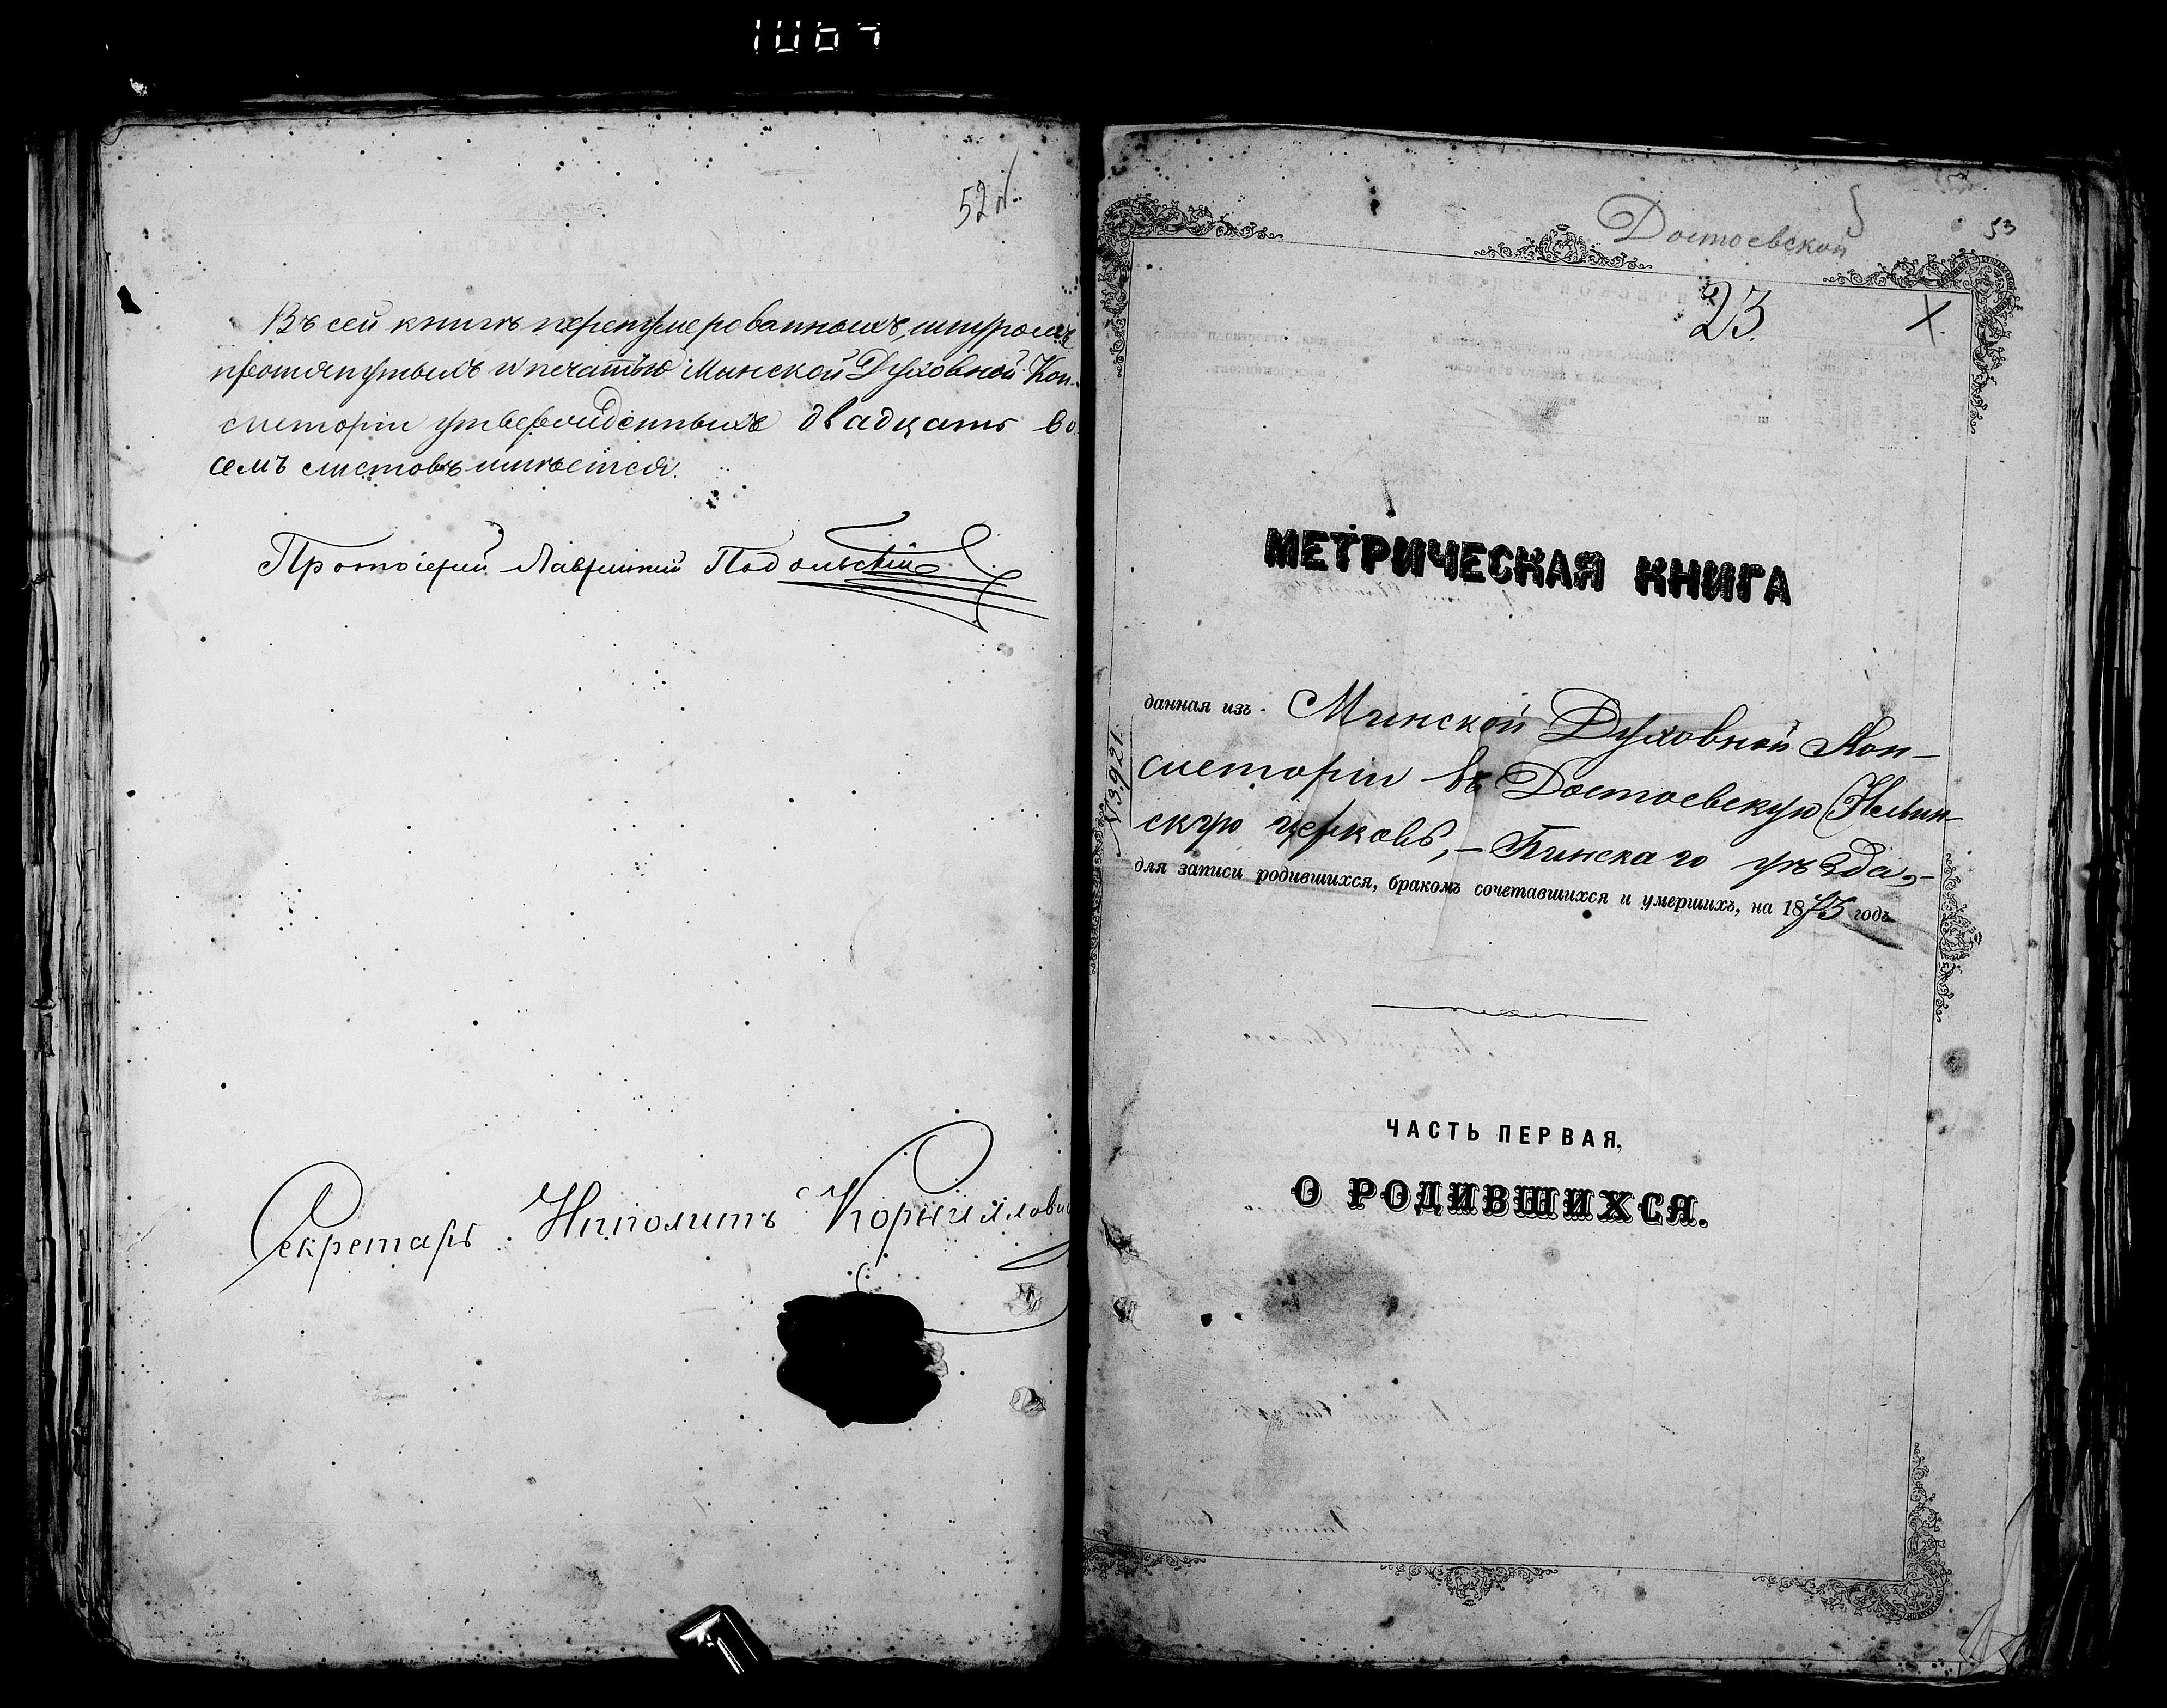 52 об.
Въ сей книгѣ перенумерованныхъ, шнуромъ
протянутыхъ и печатью Минской Духовной Кон-
систоріи утвержденныхъ двадцать во
семъ листовъ имѣется.
Протоіерей Лаврентій Подольскій
Секретарь Ипполитъ Корнилови
Достоевской
53
23.
МЕТРИЧЕСКАЯ КНИГА
данная изъ Минской Духовной Кон-
систоріи въ Достоевскую
скую церковь, - Пинскаго уѣзда, -
для записи родившихся, бракомъ сочетавшихся и умершихъ, на 1873 годъ
№ 3,921.
ЧАСТЬ ПЕРВАЯ,
О РОДИВШИХСЯ.